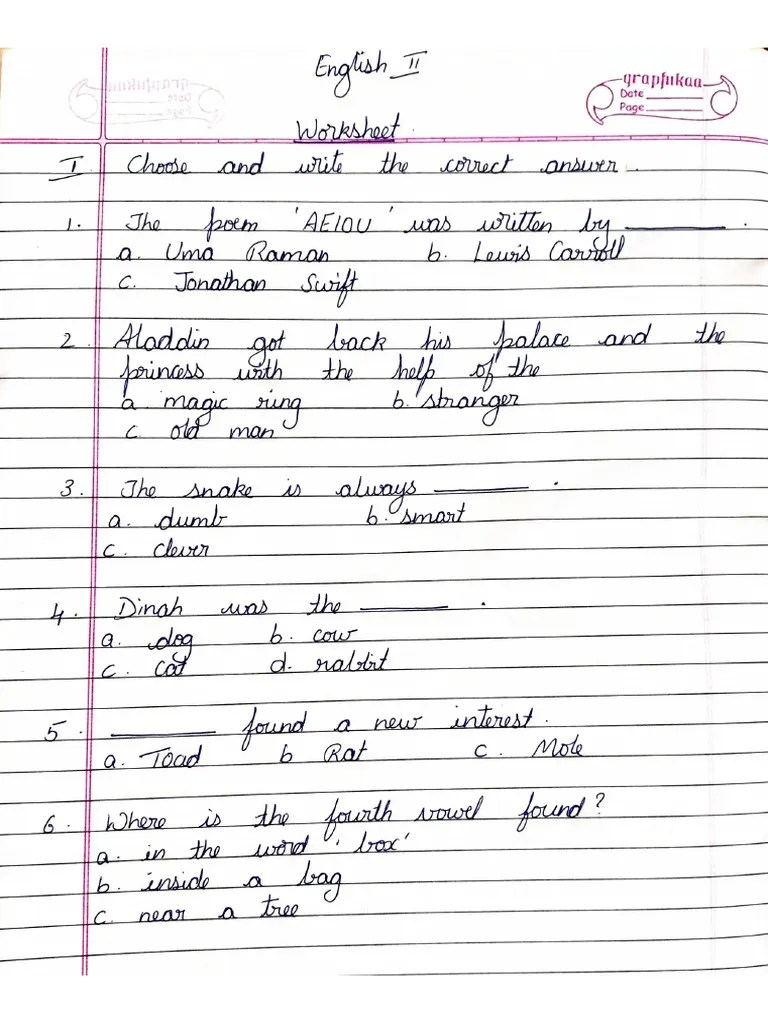 English II
graphikaa
Date
Page
Worksheet.
I Choose and write the correct answer.
1. The poem 'AEIOU' was written by ________.
a. Uma Raman b. Lewis Carroll
c. Jonathan Swift
2. Aladdin got back his palace and the
princess with the help of the
a. magic ring b. stranger
c. old man
3. The snake is always ________.
a. dumb b. smart
c. clever
4. Dinah was the ________.
a. dog b. cow
c. cat d. rabbit
5. ________ found a new interest.
a. Toad b Rat c. Mole
6. Where is the fourth vowel found?
a. in the word 'box'
b. inside a bag
c. near a tree